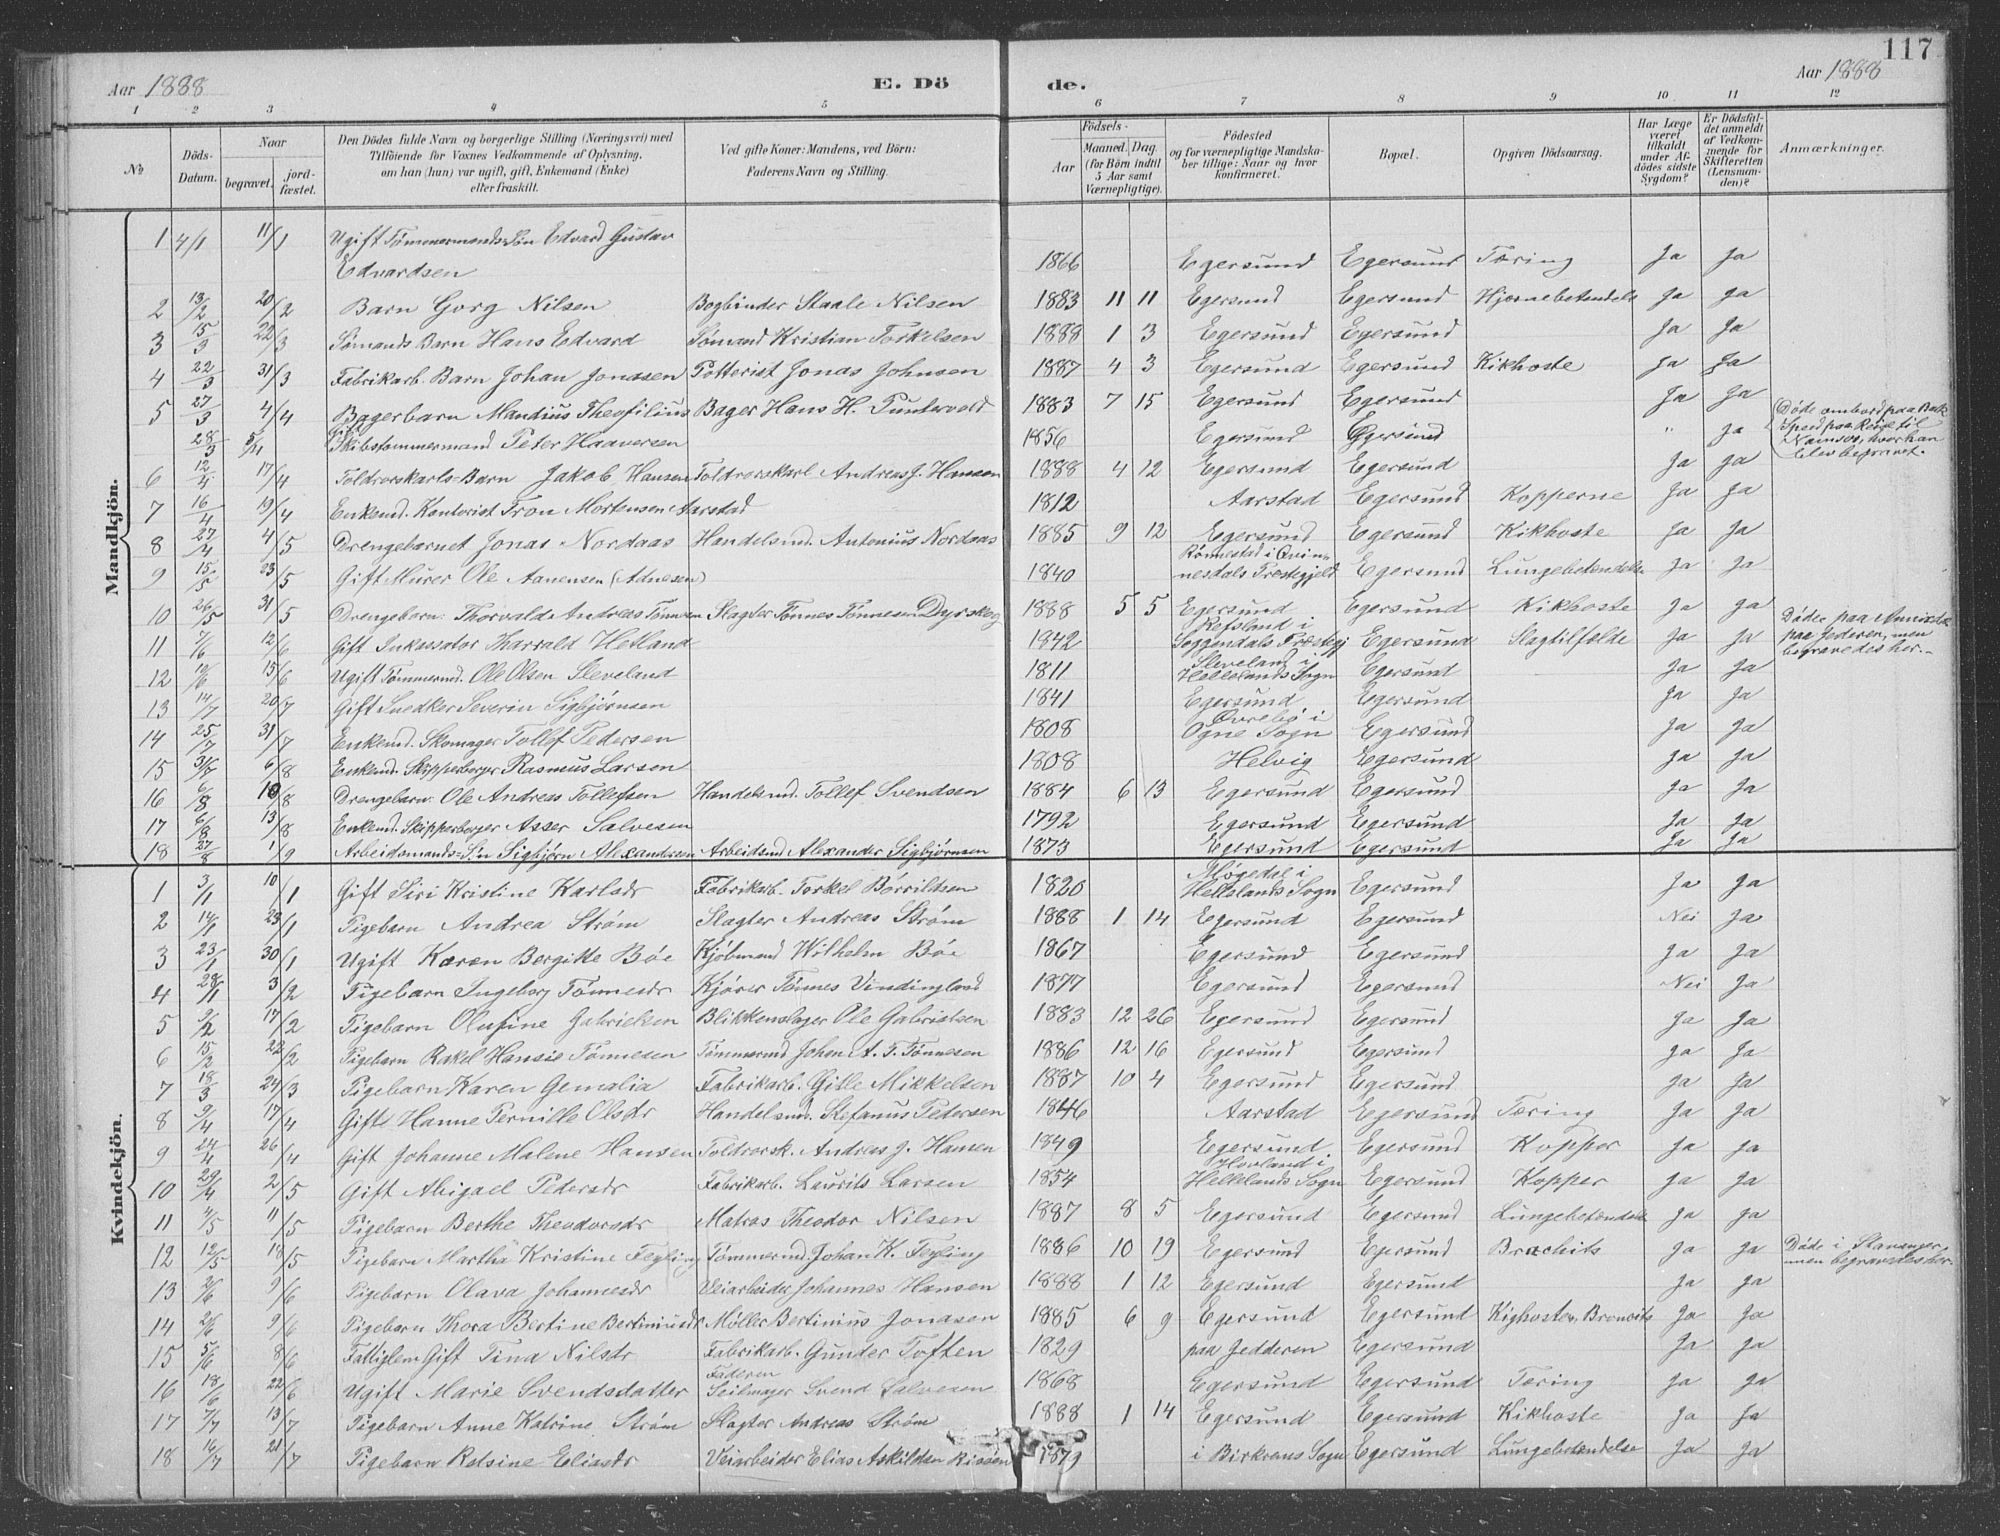 117
Aar 1888 E. Dö de. Aar 1888
1 2 3 4 5 6 7 8 9 10 11 12
№
Döds-Datum.
Naar
begravet. jordfæstet.
Den Dödes fulde Navn og borgerlige Stilling (Næringsvei) med
Tilföiende for Voxnes Vedkommende af Oplysning,
om han (hun) var ugift, gift, Enkemand (Enke)
eller fraskilt.
Ved gifte Koner: Mandens, ved Börn:
Faderens Navn og Stilling.
Födsels-
Aar
Maaned. Dag.
(for Börn indtil
5 Aar samt
Værnepligtige).
Födested
og for værnepligtige Mandska-
ber tillige: Naar og hvor
konfirmeret.
Bopæl.
Opgiven Dödsaarsag.
Har Læge
været
tilkaldt
under Af-
dödes sidste
Sygdom?
Er Dödsfal-
det anmeldt
af Vedkom-
mende for
Skifteretten
(Lensman-
den)?
Anmærkninger.
Mandkjön.
1 4/1 11/1 Ugift Tømmermands Søn Edvard Gustav
Edvardsen 1866 Egersund Egersund Tæring Ja Ja
2 13/2 20/2 Barn Gorg Nilsen Bogbinder Staale Nilsen 1883 11 11 Egersund Egersund Hjernebetændels Ja Ja
3 15/3 22/3 Sømands Barn Hans Edvard Sømand Kristian Torkelsen 1888 1 3 Egersund Egersund Ja Ja
4 22/3 31/3 Fabrikarb. Barn Johan Jonassen Potterist Jonas Johnsen 1887 4 3 Egersund Egersund Kikhoste Ja Ja
5 27/3 4/4 Bagerbarn Mandius Theofilius Bager Hans H. Puntervold 1883 7 15 Egersund Egersund Ja Ja
28/3 5/4 Gift Skibstømmermand Peter Haaversen 1856 Egersund Egersund " Ja Døde ombord paa Bark
Speed paa Reise til
Namsos, hvor han
blev begravet.
6 12/4 17/4 Toldrorskarls-Barn Jakob Hansen Toldrorskarl Andreas J. Hansen 1888 4 12 Egersund Egersund Ja Ja
7 16/4 19/4 Enkemd. Kontorist Tron Mortensen Aarstad 1812 Aarstad Egersund Kopperne Ja Ja
8 27/4 4/5 Drengebarnet Jonas Nordaas Handelsmd. Antonius Nordaas 1885 9 12 Egersund Egersund Kikhoste Ja Ja
9 15/5 23/5 Gift Murer Ole Aanensen (Adnesen) 1840 Rønnestad i Qvin-
nesdals Præstegjeld Egersund Lungebetændelse Ja Ja
10 26/5 31/5 Drengebarn: Thorvald Andreas Tønnesen Slagter Tønnes Tønnesen Dyrskog 1888 5 5 Egersund Egersund Kikhoste Ja Ja
11 7/6 12/6 Gift Inkassator Harrald Hetland 1842 Refsland i
Soggendals Præstegj Egersund Slagtilfælde Ja Ja Døde paa
paa Jæderen, men
begravedes her.
12 12/6 15/6 Ugift Tømmermd. Ole Olsen Sleveland 1811 Sleveland i
Hellelands Sogn Egersund Ja Ja
13 14/7 20/7 Gift Snedker Severin Sigbjørnsen 1841 Egersund Egersund Ja Ja
14 25/7 31/7 Enkemd. Skomager Tollef Pedersen 1808 Øvrebø i
Ogne Sogn Egersund Ja Ja
15 31/7 6/8 Enkemd. Skipperborger Rasmus Larsen 1808 Helvig Egersund Ja Ja
16 6/8 10/8 Drengebarn: Ole Andreas Tollefsen Handelsmd. Tollef Svendsen 1884 6 13 Egersund Egersund Ja Ja
17 6/8 13/8 Enkemd. Skipperborger Asser Salvesen 1792 Egersund Egersund Ja Ja
18 27/8 1/9 Arbeidsmands-Søn Sigbjørn Alexandersen Arbeidsmd. Alexander Sigbjørnsen 1873 Egersund Egersund Ja Ja
Kvindekjön.
1 3/1 10/1 Gift Siri Kristine Karlsdr Fabrikarb. Torkel Børrildsen 1820 Møgedel i
Hellelands Sogn Egersund Ja Ja
2 14/1 23/1 Pigebarn Andrea Strøm Slagter Andreas Strøm 1888 1 14 Egersund Egersund Nei Ja
3 23/1 30/1 Ugift Karen Bergitte Bøe Kjøbmand Wilhelm Bøe 1867 Egersund Egersund Ja Ja
4 28/1 3/2 Pigebarn Ingeborg Tønnesdr Kjører Tønnes Vindingland 1877 Egersund Egersund Nei Ja
5 9/2 17/2 Pigebarn Olufine Gabrielsen Blikkenslager Ole Gabrielsen 1883 12 26 Egersund Egersund Ja Ja
6 15/2 22/2 Pigebarn Rakel Hansie Tønnesen Tømmermd. Johan A. T. Tønnesen 1886 12 16 Egersund Egersund Ja Ja
7 18/3 24/3 Pigebarn Karen Gemalia Fabrikarb. Gitle Mikkelsen 1887 10 4 Egersund Egersund Ja Ja
8 9/4 17/4 Gifte Hanne Pernille Olsdr Handelsmd. Stefanus Pedersen 1846 Aarstad Egersund Tæring Ja Ja
9 24/4 26/4 Gift Johanne Malene Hansen Toldrorsk. Andreas J. Hansen 1849 Egersund Egersund Kopper Ja Ja
10 29/4 2/5 Gift Abigael Pedersdr Fabrikarb. Laurits Larsen 1854 Hovland i
Hellelands Sogn Egersund Kopper Ja Ja
11 4/5 11/5 Pigebarn Berthe Theodorsdr Matros Theodor Nilsen 1887 8 5 Egersund Egersund Lungebetændelse Ja Ja
12 12/5 18/5 Pigebarn Martha Kristine Tegling Tømmermd. Johan K. Tegling 1886 10 19 Egersund Egersund Brochits Ja Ja Døde i Stavanger,
men begravedes her.
13 3/6 9/6 Pigebarn Olava Johannesdr Veiarbeider Johannes Hansen 1888 1 12 Egersund Egersund Ja Ja
14 2/6 9/6 Pigebarn Thora Bertine Bertiniusdr Møller Bertinius Jonassen 1885 6 9 Egersund Egersund Kighoste, Broncits Ja Ja
15 5/6 8/6 Fattiglem Gift Tina Nilsdr Fabrikarb. Gunder Toften 1829 paa Jedderen Egersund Ja Ja
16 18/6 22/6 Ugift Marie Svendsdatter Faderen
Seilmager Svend Salvesen 1868 Egersund Egersund Tæring Ja Ja
17 7/7 13/7 Pigebarn Anne Katrine Strøm Slagter Andreas Strøm 1888 1 14 Egersund Egersund Kikhoste Ja Ja
18 16/7 21/7 Pigebarn Relsine Eliasdr Veiarbeider Elias Askildsen 1879 i Birkrems Sogn Egersund Lungebetændelse Ja Ja